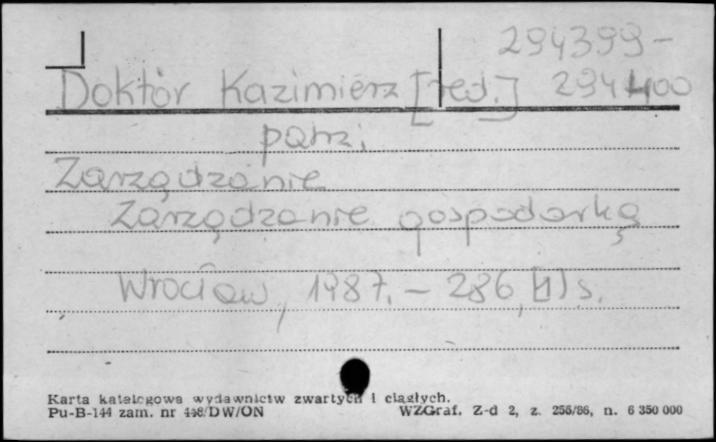 294399-
Doktór Kazimierz [red.] 294400
patrz:
Zarządzanie
Zarządzanie gospodarką
Wrocław, 1987. - 286, [1] s.
Karta katalogowa wydawnictw zwartych i ciągłych.
Pu-B-144 zam. nr 448/DW/ON WZGraf. Z-d 2, z. 255/86, n. 6 350 000